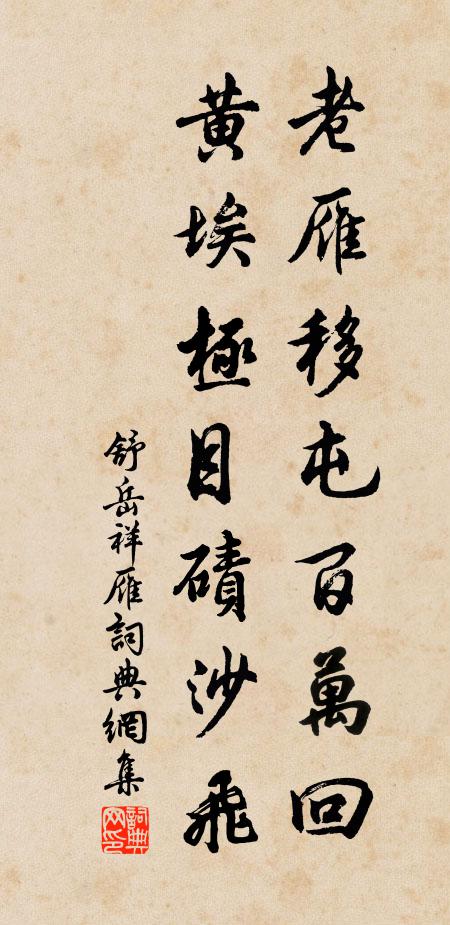 老雁移屯百萬回
黃埃極目磧沙飛
舒岳祥雁詞典網集
詞典網印